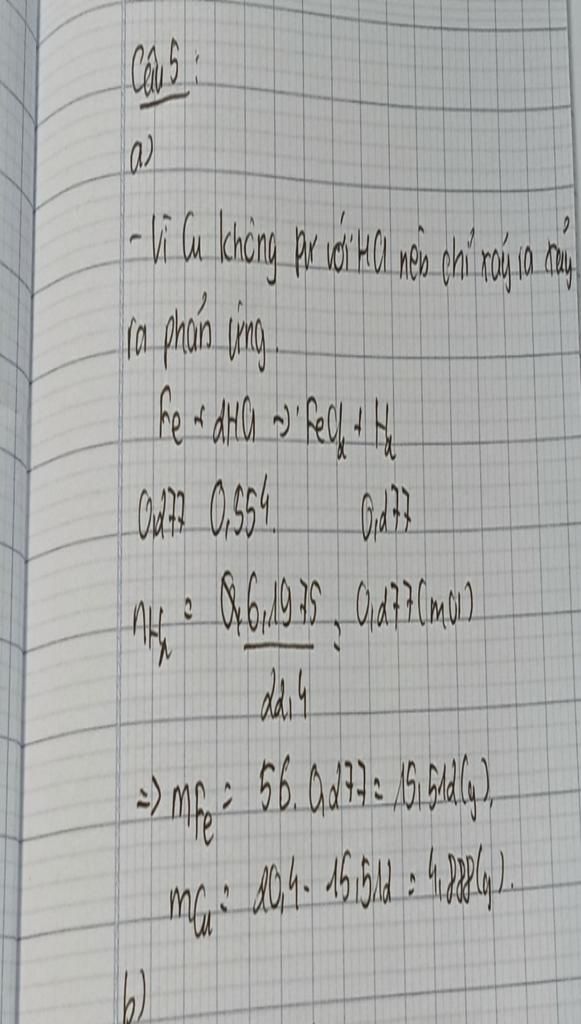 Câu 5 :
a)
- Vì Cu không pư với HCl nên chỉ xảy ra xảy
ra phản ứng.
Fe + 2HCl → FeCl2 + H2
0,277 0,554 0,277
nH2 = 6,1975 / 22,4 = 0,277 (mol)
=> mFe = 56. 0,277 = 15,512 (g).
mCu = 20,4 - 15,512 = 4,888 (g).
b)